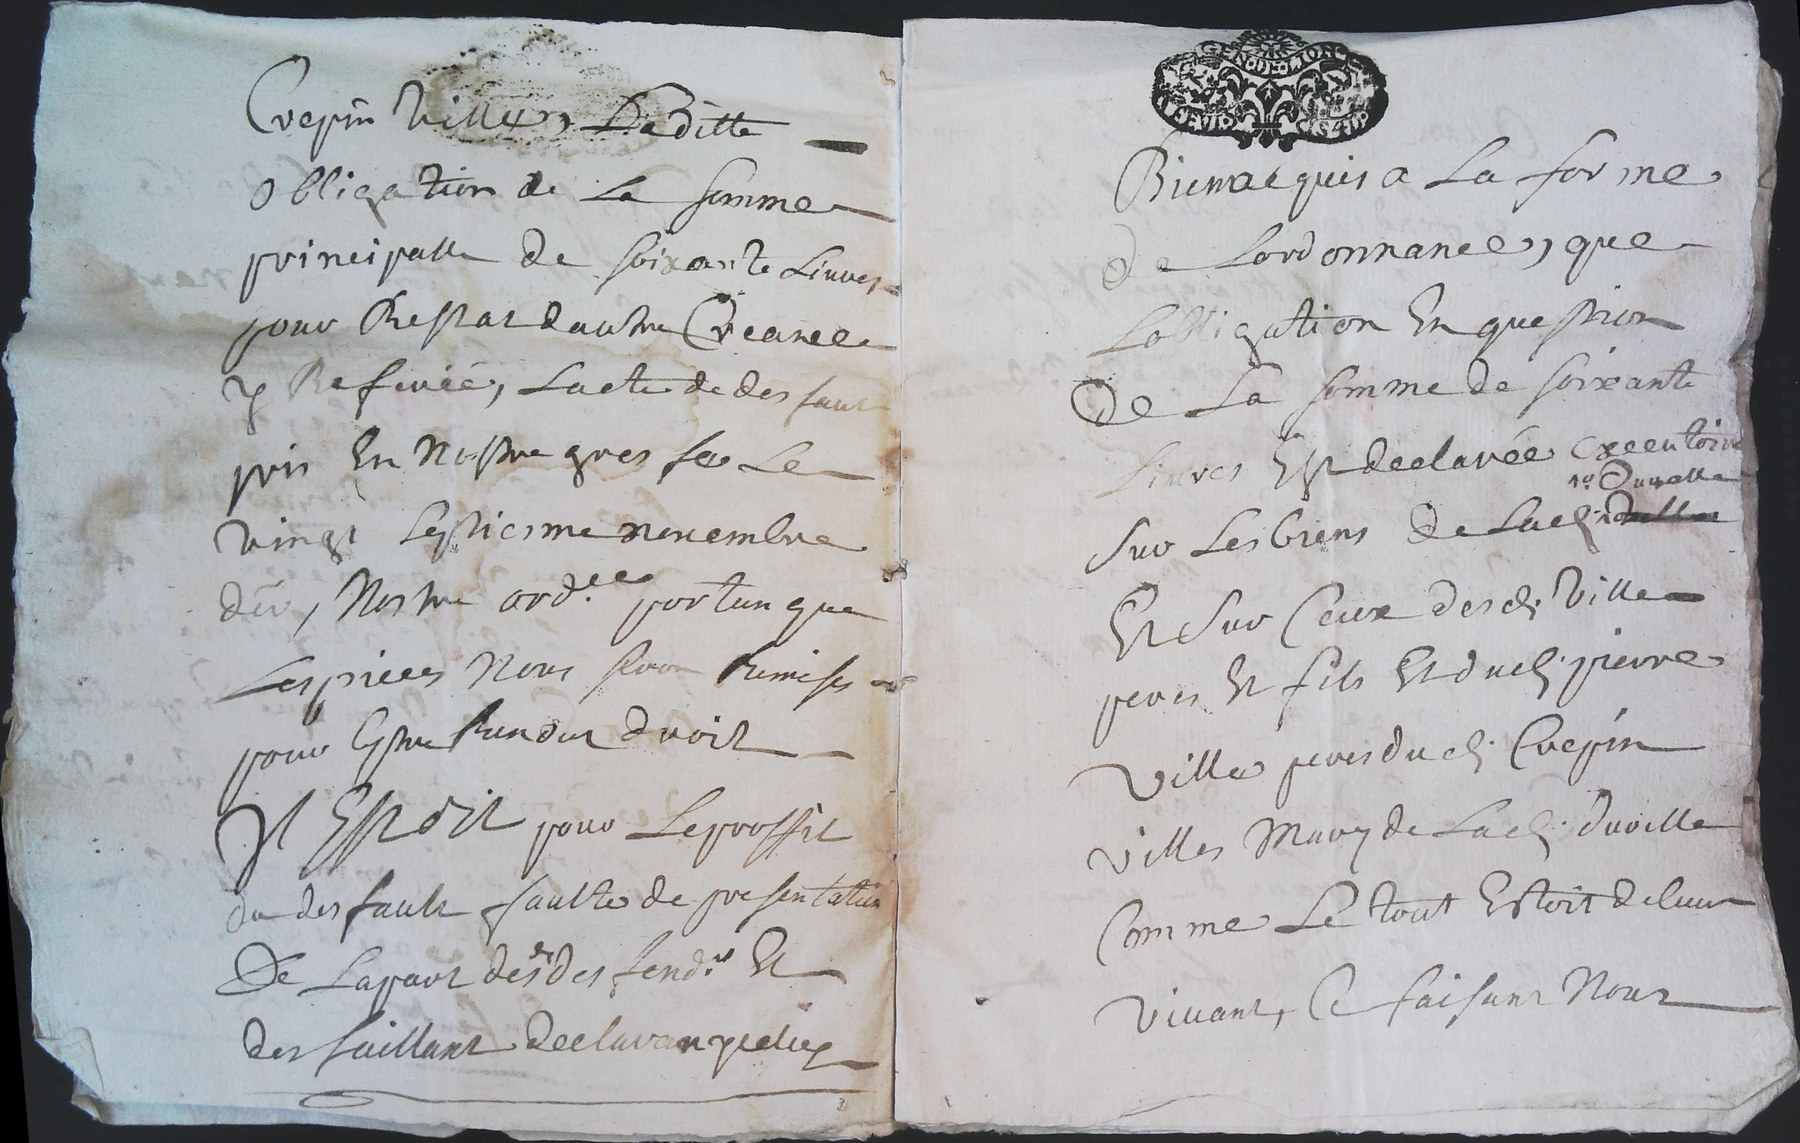 Crepin Villes, Laditte
Obligation de La somme
principalle de soixante Liures
pour Restat dautre Creance
y Referée, Lacte de desfault
pris En Nostre greffe Le
vingt septiesme nouembre
der, Nostre ord.ce portan que
Les pieces Nous seron Remises
pour Estre Rendu droit
Il Est dit pour Le proffit
du desfault faulte de presentation
De La part desd. desfend.rs Et
desfaillant declaran
GENERALITE
Bien acquis a La forme
de Lordonnance, que
Lobligation En question
De La somme de soixante
Liures Est declarée executoire
sur Les biens de Lad.
Et sur Ceux desd. Ville
peres Et fils Et dud. pierre
Ville peres dud. Crepin
Villes Mary de Lad. duville
Comme Le tout Estoit de leur
viuant, Ce faisant Nous